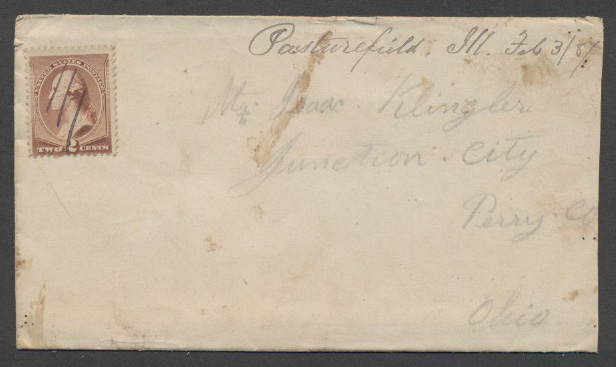 Pasturefield, Ill. Feb 3/87
UNITED STATES POSTAGE
TWO 2 CENTS
Mr. Isaac Klingler
Junction City
Perry Co
Ohio